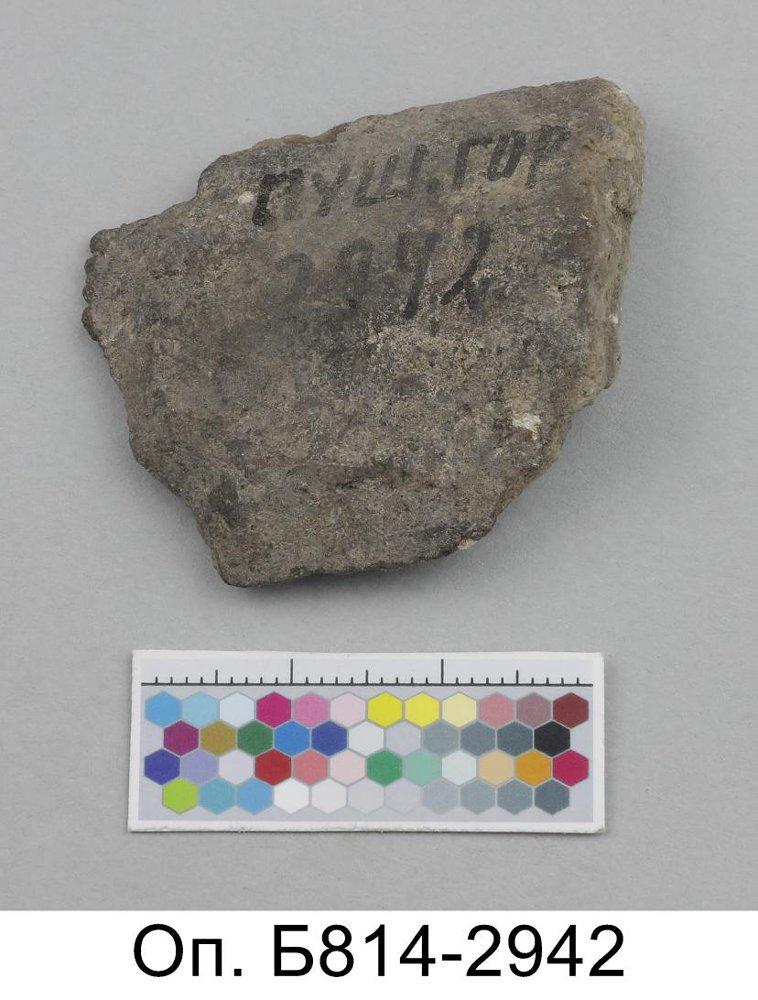 ПУШ.ГОР
2942
Оп. Б814-2942